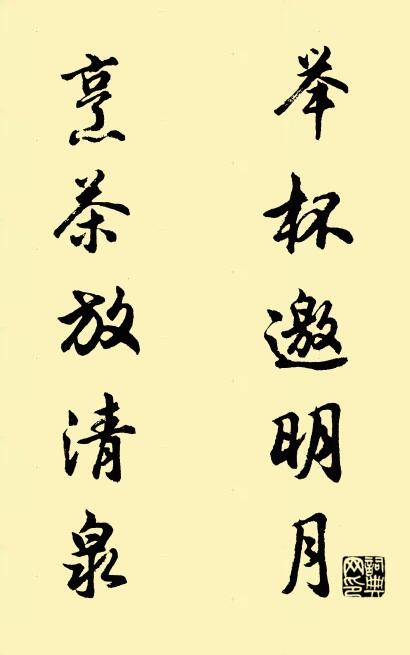 举杯邀明月
烹茶放清泉
詞典网印